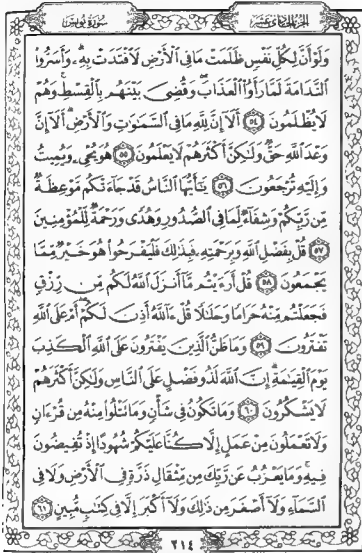 الجزء الحادي عشر
سورة يونس
وَلَوْ أَنَّ لِكُلِّ نَفْسٍ ظَلَمَتْ مَا فِي ٱلْأَرْضِ لَٱفْتَدَتْ بِهِۦ وَأَسَرُّوا۟
ٱلنَّدَامَةَ لَمَّا رَأَوُا۟ ٱلْعَذَابَ وَقُضِىَ بَيْنَهُم بِٱلْقِسْطِ وَهُمْ
لَا يُظْلَمُونَ ٥٤ أَلَآ إِنَّ لِلَّهِ مَا فِي ٱلسَّمَٰوَٰتِ وَٱلْأَرْضِ أَلَآ إِنَّ
وَعْدَ ٱللَّهِ حَقٌّ وَلَٰكِنَّ أَكْثَرَهُمْ لَا يَعْلَمُونَ ٥٥ هُوَ يُحْىِۦ وَيُمِيتُ
وَإِلَيْهِ تُرْجَعُونَ ٥٦ يَٰٓأَيُّهَا ٱلنَّاسُ قَدْ جَآءَتْكُم مَّوْعِظَةٌ
مِّن رَّبِّكُمْ وَشِفَآءٌ لِّمَا فِي ٱلصُّدُورِ وَهُدًى وَرَحْمَةٌ لِّلْمُؤْمِنِينَ
٥٧ قُلْ بِفَضْلِ ٱللَّهِ وَبِرَحْمَتِهِۦ فَبِذَٰلِكَ فَلْيَفْرَحُوا۟ هُوَ خَيْرٌ مِّمَّا
يَجْمَعُونَ ٥٨ قُلْ أَرَءَيْتُم مَّآ أَنزَلَ ٱللَّهُ لَكُم مِّن رِّزْقٍ
فَجَعَلْتُم مِّنْهُ حَرَامًا وَحَلَٰلًا قُلْ ءَآللَّهُ أَذِنَ لَكُمْ أَمْ عَلَى ٱللَّهِ
تَفْتَرُونَ ٥٩ وَمَا ظَنُّ ٱلَّذِينَ يَفْتَرُونَ عَلَى ٱللَّهِ ٱلْكَذِبَ
يَوْمَ ٱلْقِيَٰمَةِ إِنَّ ٱللَّهَ لَذُو فَضْلٍ عَلَى ٱلنَّاسِ وَلَٰكِنَّ أَكْثَرَهُمْ
لَا يَشْكُرُونَ ٦٠ وَمَا تَكُونُ فِي شَأْنٍ وَمَا تَتْلُوا۟ مِنْهُ مِن قُرْءَانٍ
وَلَا تَعْمَلُونَ مِنْ عَمَلٍ إِلَّا كُنَّا عَلَيْكُمْ شُهُودًا إِذْ تُفِيضُونَ
فِيهِ وَمَا يَعْزُبُ عَن رَّبِّكَ مِن مِّثْقَالِ ذَرَّةٍ فِي ٱلْأَرْضِ وَلَا فِي
ٱلسَّمَآءِ وَلَآ أَصْغَرَ مِن ذَٰلِكَ وَلَآ أَكْبَرَ إِلَّا فِي كِتَٰبٍ مُّبِينٍ ٦١
٢١٤